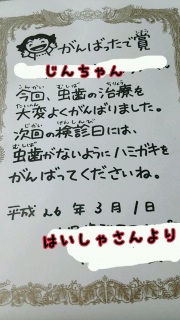 がんばったで賞
じんちゃん
今回、虫歯の治療を
大変よくがんばりました。
次回の検診日には、
虫歯がないようにハミガキを
がんばってくださいね。
平成26年3月1日
はいしゃさんより